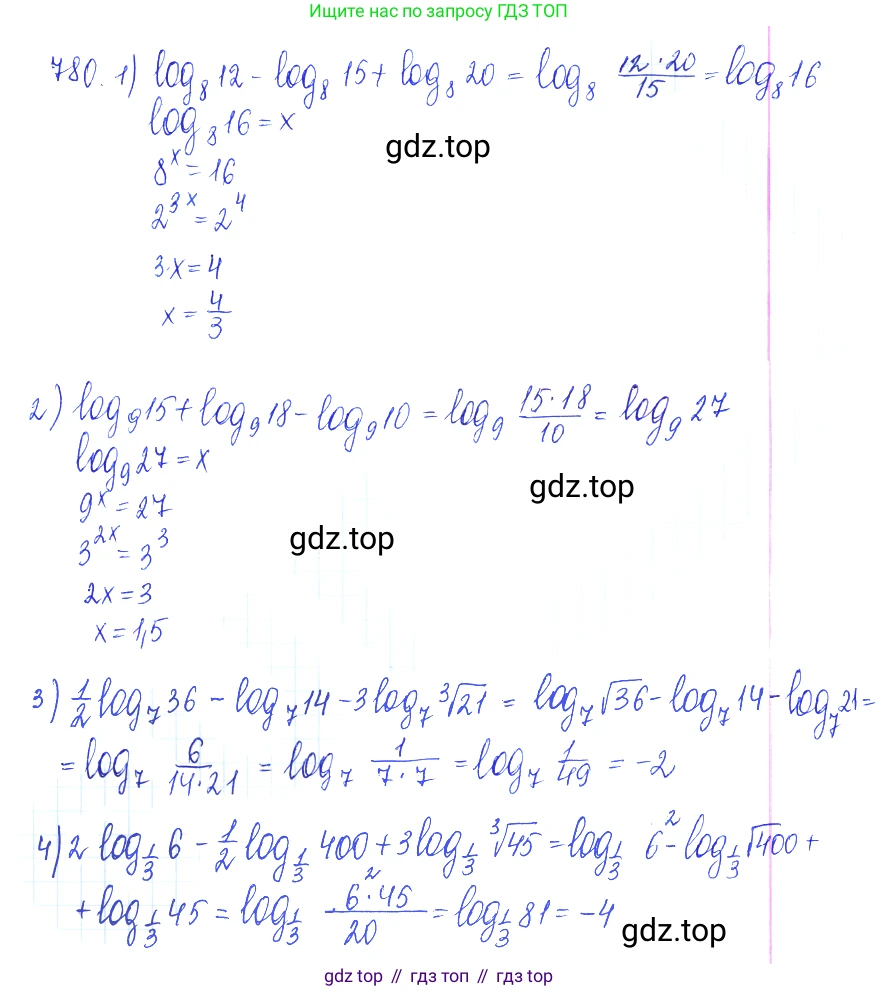 Ищите нас по запросу ГДЗ ТОП
780. 1) log₈ 12 - log₈ 15 + log₈ 20 = log₈ (12·20)/15 = log₈ 16
log₈ 16 = x
gdz.top
8^x = 16
2^(3x) = 2^4
3·x = 4
x = 4/3
2) log₉ 15 + log₉ 18 - log₉ 10 = log₉ (15·18)/10 = log₉ 27
log₉ 27 = x
gdz.top
9^x = 27
gdz.top
3^(2x) = 3^3
2x = 3
x = 1,5
3) 1/2 log₇ 36 - log₇ 14 - 3 log₇ ∛21 = log₇ √36 - log₇ 14 - log₇ 21 =
= log₇ 6/(14·21) = log₇ 1/(7·7) = log₇ 1/49 = -2
4) 2 log_(1/3) 6 - 1/2 log_(1/3) 400 + 3 log_(1/3) ∛45 = log_(1/3) 6² - log_(1/3) √400 +
+ log_(1/3) 45 = log_(1/3) (6²·45)/20 = log_(1/3) 81 = -4
gdz.top
gdz top // гдз топ // gdz top